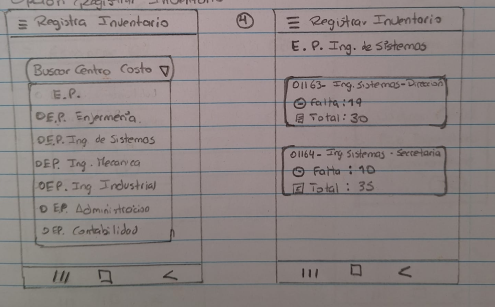 Opción Registrar Inventario
≡ Registra Inventario
Buscar Centro Costo ▽
E.P.
E.P. Enfermería
E.P. Ing de Sistemas
E.P. Ing. Mecanica
E.P. Ing Industrial
E.P. Administracion
E.P. Contabilidad
4
≡ Registrar Inventario
E. P. Ing. de Sistemas
01163- Ing. Sistemas - Direccion
Falta : 19
Total : 30
01164 - Ing Sistemas - Secretaria
Falta : 10
Total : 35